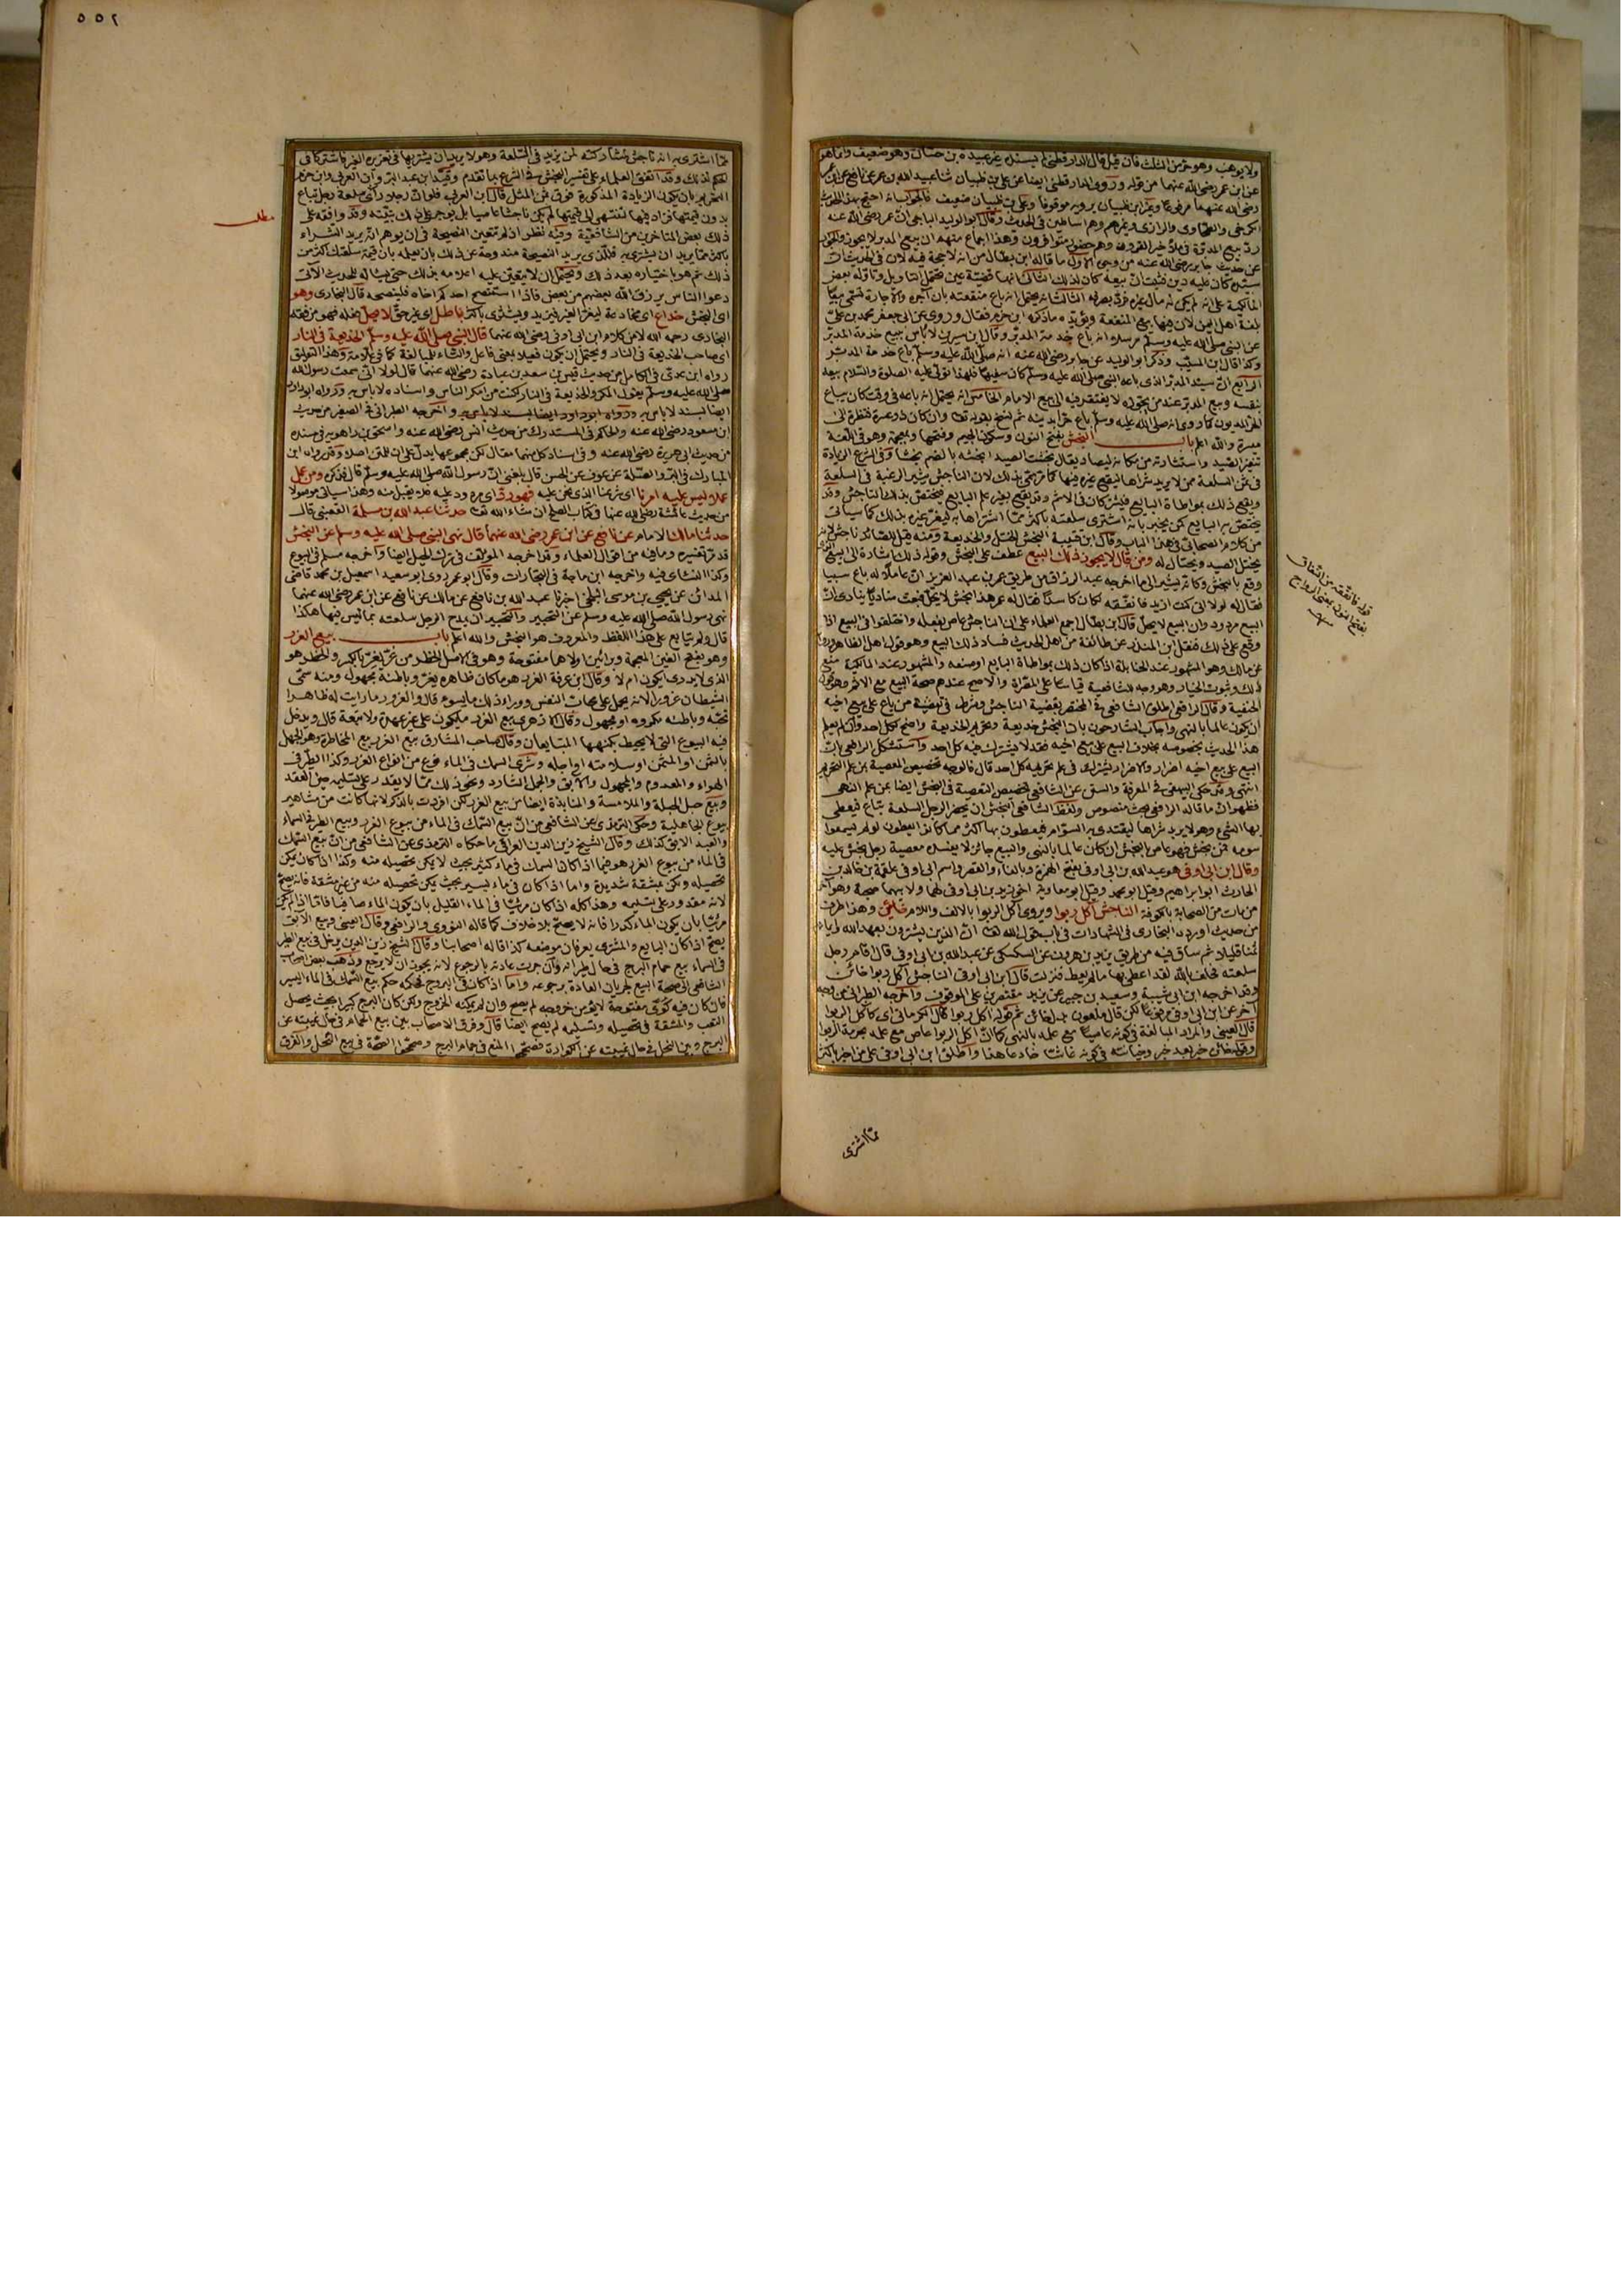 ولا يوهب وهو حر من الثلث فان قيل قال الدارقطني لم يسنده غير عبيدة بن حسان وهو ضعيف وانما هو
عن ابن عمر رضي الله عنهما من قوله وروى الدارقطني ايضا عن علي بن ظبيان ثنا عبيد الله بن عمر عن نافع عن ابن عمر
رضي الله عنهما مرفوعا وغير ابن ظبيان يرويه موقوفا وعلي بن ظبيان ضعيف فالجواب انه احتج بهذا الحديث
الكرخي والطحاوي والرازي وغيرهم وهم اساطين في الحديث وقال ابو الوليد الباجي ان عمر رضي الله عنه
رد بيع المدبرة في ملأ خير القرون وهم حضور متوافرون وهذا اجماع منهم ان بيع المدبر لا يجوز والجواب
عن حديث جابر رضي الله عنه من وجوه الاول ما قاله ابن بطال من انه لا حجة فيه لان في الحديث ان
سيده كان عليه دين فثبت ان بيعه كان لذلك الثاني انها قضية عين تحتمل التأويل وتأوله بعض
المالكية على انه لم يكن له مال غيره فرد تصرفه الثالث انه يحتمل انه باع منفعته بان آجره والاجارة تسمى بيعا
بلغة اهل اليمن لان فيها بيع المنفعة ويؤيده ما ذكره ابن حزم فقال وروى عن ابي جعفر محمد بن علي
عن النبي صلى الله عليه وسلم مرسلا انه باع خدمة المدبر وقال ابن سيرين لا بأس ببيع خدمة المدبر
وكذا قال ابن المسيب وذكر ابو الوليد عن جابر رضي الله عنه انه صلى الله عليه وسلم باع خدمة المدبر
الرابع ان سيد المدبر الذي باعه النبي صلى الله عليه وسلم كان سفيها فلهذا تولى عليه الصلوة والسلام بيعه
بنفسه وبيع المدبر عند من يجوزه لا يفتقر فيه الى بيع الامام الخامس انه يحتمل انه باعه في وقت كان يباع
الحر المديون كما روى انه صلى الله عليه وسلم باع حرا بدينه ثم نسخ بقوله تعالى وان كان ذو عسرة فنظرة الى
ميسرة والله اعلم باب النجش بفتح النون وسكون الجيم وفتحها وبمعجمة وهو في اللغة
تنفير الصيد واستثارته من مكانه ليصاد يقال نجشت الصيد انجشه بالضم نجشا وفي الشرع الزيادة
في ثمن السلعة ممن لا يريد شراها ليقع غيره فيها كما مر سمي بذلك لان الناجش يثير الرغبة في السلعة
ويقع ذلك بمواطاة البايع فيشتركان في الاثم وقد يقع بغير علم البايع فيختص بذلك الناجش وقد
يختص به البايع كمن يخبر بانه اشترى سلعته باكثر مما اشتراها به ليغر غيره بذلك كما سيأتي
من كلام الصحابي في هذا الباب وقال ابن قتيبة النجش الختل والخديعة ومنه قيل للصائد ناجش لانه
يختل الصيد ويحتال له ومن قال لا يجوز ذلك البيع عطف على النجش وقوله ذلك اشارة الى البيع الذي
وقع بالنجش وكأنه يشير الى ما اخرجه عبد الرزاق من طريق عمر بن عبد العزيز ان عاملا له باع سبيا
فقال له لولا اني كنت ازيد فانفقه لكان كاسدا فقال له عمر هذا نجش لا يحل فبعث مناديا ينادي ان
البيع مردود وان البيع لا يحل قال ابن بطال اجمع العلماء على ان الناجش عاص بفعله واختلفوا في البيع اذا
وقع على ذلك فنقل ابن المنذر عن طائفة من اهل الحديث فساد ذلك البيع وهو قول اهل الظاهر ورواية
عن مالك وهو المشهور عند الحنابلة اذا كان ذلك بمواطاة البايع او صنعه والمشهور عند المالكية في مثل
ذلك وثبوت الخيار وهو وجه للشافعية قياسا على المصراة والاصح عندهم صحة البيع مع الاثم وهو قول
الحنفية وقال الرافعي اطلق الشافعي في المختصر تعصية الناجش وشرط في تعصية من باع على بيع اخيه
ان يكون عالما بالنهي واجاب الشارحون بان النجش خديعة وتحريم الخديعة واضح لكل احد وان لم يعلم
هذا الحديث بخصوصه بخلاف البيع على بيع اخيه فقد لا يشترك فيه كل احد واستشكل الرافعي بان
البيع على بيع اخيه اضرار والاضرار يشترك في علم تحريمه كل احد قال فالوجه تخصيص المعصية بمن علم التحريم
انتهى وقد حكى البيهقي في المعرفة والسنن عن الشافعي تخصيص التعصية في النجش ايضا بمن علم النهي
فظهر ان ما قاله الرافعي بحث منصوص ولفظ الشافعي النجش ان يحضر الرجل السلعة تباع فيعطي
بها الشيء وهو لا يريد شراها ليقتدي به السوام فيعطون بها اكثر مما كانوا يعطون لو لم يسمعوا
سومه فمن نجش فهو عاص بالنجش ان كان عالما بالنهي والبيع جائز لا يفسده معصية رجل نجش عليه
وقال ابن ابي اوفى هو عبد الله بن ابي اوفى بفتح الهمزة وبالفاء والقصر واسم ابي اوفى علقمة بن خالد بن
الحارث ابو ابراهيم وقيل ابو محمد وقيل ابو معاوية اخو زيد بن ابي اوفى لهما ولابيهما صحبة وهو آخر
من مات من الصحابة بالكوفة الناجش آكل ربوا ويروى آكل الربوا بالالف واللام خائن وهذا طرف
من حديث اورده البخاري في الشهادات في باب قول الله تعالى ان الذين يشترون بعهد الله وايمانهم
ثمنا قليلا ثم ساق فيه من طريق يزيد بن هرون عن السكسكي عن عبد الله بن ابي اوفى قال اقام رجل
سلعته فحلف بالله لقد اعطي بها ما لم يعط فنزلت قال ابن ابي اوفى الناجش آكل ربوا خائن
وقد اخرجه ابن ابي شيبة وسعيد بن منصور عن يزيد مقتصرين على الموقوف واخرجه الطبراني من وجه
آخر عن ابن ابي اوفى مرفوعا لكن قال ملعون بدل خائن ثم قوله آكل ربوا قال الكرماني اي كآكل الربوا
قال العيني والمراد المبالغة في كونه عاصيا مع علمه بالنهي كما ان آكل الربوا عاص مع علمه بحرمة الربوا
وقوله خائن خبر بعد خبر وخيانته في كونه غاشا خادعا هذا واطلق ابن ابي اوفى على من اخبر باكثر
قوله فانفقه من النفاق
بفتح النون بمعنى الرواج
منه
مما اشترى
٥٥٢
مما اشترى به انه ناجش لمشاركته لمن يزيد في السلعة وهو لا يريد ان يشتريها في تغرير الغير فاشتركا في
الحكم لذلك وقد اتفق العلماء على تفسير النجش في الشرع بما تقدم وقيد ابن عبد البر وابن العربي وابن حزم
التحريم بان يكون الزيادة المذكورة فوق ثمن المثل قال ابن العربي فلو ان رجلا رأى سلعة رجل تباع
بدون قيمتها فزاد فيها لتنتهي الى قيمتها لم يكن ناجشا عاصيا بل يوجر على ذلك بنيته وقد وافقه على
ذلك بعض المتاخرين من الشافعية وفيه نظر اذ لم تتعين النصيحة في ان يوهم انه يريد الشراء
باكثر مما يريد ان يشتري به فللذي يريد النصيحة مندوحة عن ذلك بان يعلمه بان قيمة سلعتك اكثر من
ذلك ثم هو باختياره بعد ذلك ويحتمل ان لا يتعين عليه اعلامه بذلك حتى يسأله للحديث الآتي
دعوا الناس يرزق الله بعضهم من بعض فاذا استنصح احدكم اخاه فلينصحه قال البخاري وهو
اي النجش خداع اي مخادعة ليغر الغير فيزيد ويشتري باكثر باطل اي غير حق لا يحل فعله فهو من تفقه
البخاري رحمه الله لا من كلام ابن ابي اوفى رضي الله عنهما قال النبي صلى الله عليه وسلم الخديعة في النار
اي صاحب الخديعة في النار ويحتمل ان يكون فعيلا بمعنى فاعل والتاء للمبالغة كما في علامة وهذا التعليق
رواه ابن عدي في الكامل من حديث قيس بن سعد بن عبادة رضي الله عنهما قال لولا اني سمعت رسول الله
صلى الله عليه وسلم يقول المكر والخديعة في النار لكنت من امكر الناس واسناده لا باس به ورواه ابو داود
ايضا بسند لا باس به ورواه ابو داود ايضا بسند لا باس به واخرجه الطبراني في الصغير من حديث
ابن مسعود رضي الله عنه والحاكم في المستدرك من حديث انس رضي الله عنه واسحق بن راهويه في مسنده
من حديث ابي هريرة رضي الله عنه وفي اسناد كل منهما مقال لكن مجموعها يدل على ان للمتن اصلا وقد رواه ابن
المبارك في البر والصلة عن عوف عن الحسن قال بلغني ان رسول الله صلى الله عليه وسلم قال فذكره ومن عمل
عملا ليس عليه امرنا اي شرعنا الذي نحن عليه فهو رد اي مردود عليه فلا يقبل منه وهذا سيأتي موصولا
من حديث عائشة رضي الله عنها في كتاب الصلح ان شاء الله تعالى حدثنا عبد الله بن مسلمة القعنبي قال
حدثنا مالك الامام عن نافع عن ابن عمر رضي الله عنهما قال نهى النبي صلى الله عليه وسلم عن النجش
قد مر تفسيره وما فيه من اقوال العلماء وقد اخرجه المؤلف في ترك الحيل ايضا واخرجه مسلم في البيوع
وكذا النسائي فيه واخرجه ابن ماجة في التجارات وقال ابو عمر روى ابو سعيد اسمعيل بن محمد قاضي
المدائن عن يحيى بن موسى البلخي اخبرنا عبد الله بن نافع عن مالك عن نافع عن ابن عمر رضي الله عنهما
نهى رسول الله صلى الله عليه وسلم عن التحبير والتحبير ان يمدح الرجل سلعته بما ليس فيها هكذا
قال ولم يتابع على هذا اللفظ والمعروف هو النجش والله اعلم باب بيع الغرر
وهو بفتح الغين المعجمة وبرائين اولاهما مفتوحة وهو في الاصل الخطر من غر يغر بالكسر والخطر هو
الذي لا يدرى ايكون ام لا وقال ابن عرفة الغرر هو ما كان ظاهره يغر وباطنه مجهول ومنه سمي
الشيطان غرورا لانه يحمل على محاب النفس ووراء ذلك ما يسوء قال والغرور ما رايت له ظاهرا
تحبه وباطنه مكروه او مجهول وقال الازهري بيع الغرر ما يكون على غير عهدة ولا ثقة قال ويدخل
فيه البيوع التي لا يحيط بكنهها المتبايعان وقال صاحب المشارق بيع الغرر بيع المخاطرة وهو الجهل
بالثمن او المثمن او سلامته او اجله وشرى السمك في الماء نوع من انواع الغرر وكذا الطير في
الهواء والمعدوم والمجهول والآبق والجمل الشارد ونحو ذلك مما لا يقدر على تسليمه حين العقد
وبيع حبل الحبلة والملامسة والمنابذة ايضا من بيع الغرر لكن افردت بالذكر لانها كانت من مشاهير
بيوع الجاهلية وحكى الترمذي عن الشافعي من ان بيع السمك في الماء من بيوع الغرر وبيع الطير في السماء
والعبد الابق كذلك وقال الشيخ زين الدين العراقي ما حكاه الترمذي عن الشافعي من ان بيع السمك
في الماء من بيوع الغرر هو فيما اذا كان السمك في ماء كثير بحيث لا يمكن تحصيله منه وكذا اذا كان يمكن
تحصيله ولكن بمشقة شديدة واما اذا كان في ماء يسير بحيث يمكن تحصيله منه من غير مشقة فانه يصح
لانه مقدور على تسليمه وهذا كله اذا كان مرئيا في الماء القليل بان يكون الماء صافيا فاما اذا لم يكن
مرئيا بان يكون الماء كدرا فانه لا يصح بلا خلاف كما قاله النووي والرافعي وقال العيني وبيع الآبق
يصح اذا كان البايع والمشتري يعرفان موضعه كذا قاله اصحابنا وقال الشيخ زين الدين يدخل في بيع الطير
في السماء بيع حمام البرج في حال طيرانه وان جرت عادته بالرجوع لانه يجوز ان لا يرجع وذهب بعض اصحاب
الشافعي الى صحة البيع لجريان العادة برجوعه واما اذا كان في البرج فحكمه حكم بيع السمك في الماء اليسير
فان كان فيه كوى مفتوحة لا يؤمن خروجه لم يصح وان لم يمكنه الخروج ولكن كان البرج كبيرا بحيث يحصل
التعب والمشقة في تحصيله وتسليمه لم يصح ايضا قال وفرق الاصحاب بين بيع الحمام في حال غيبته عن
البرج وبين النحل في حال غيبته عن الكوارة فصححوا المنع في حمام البرج وصححوا الصحة في بيع النحل والفرق
مطلب